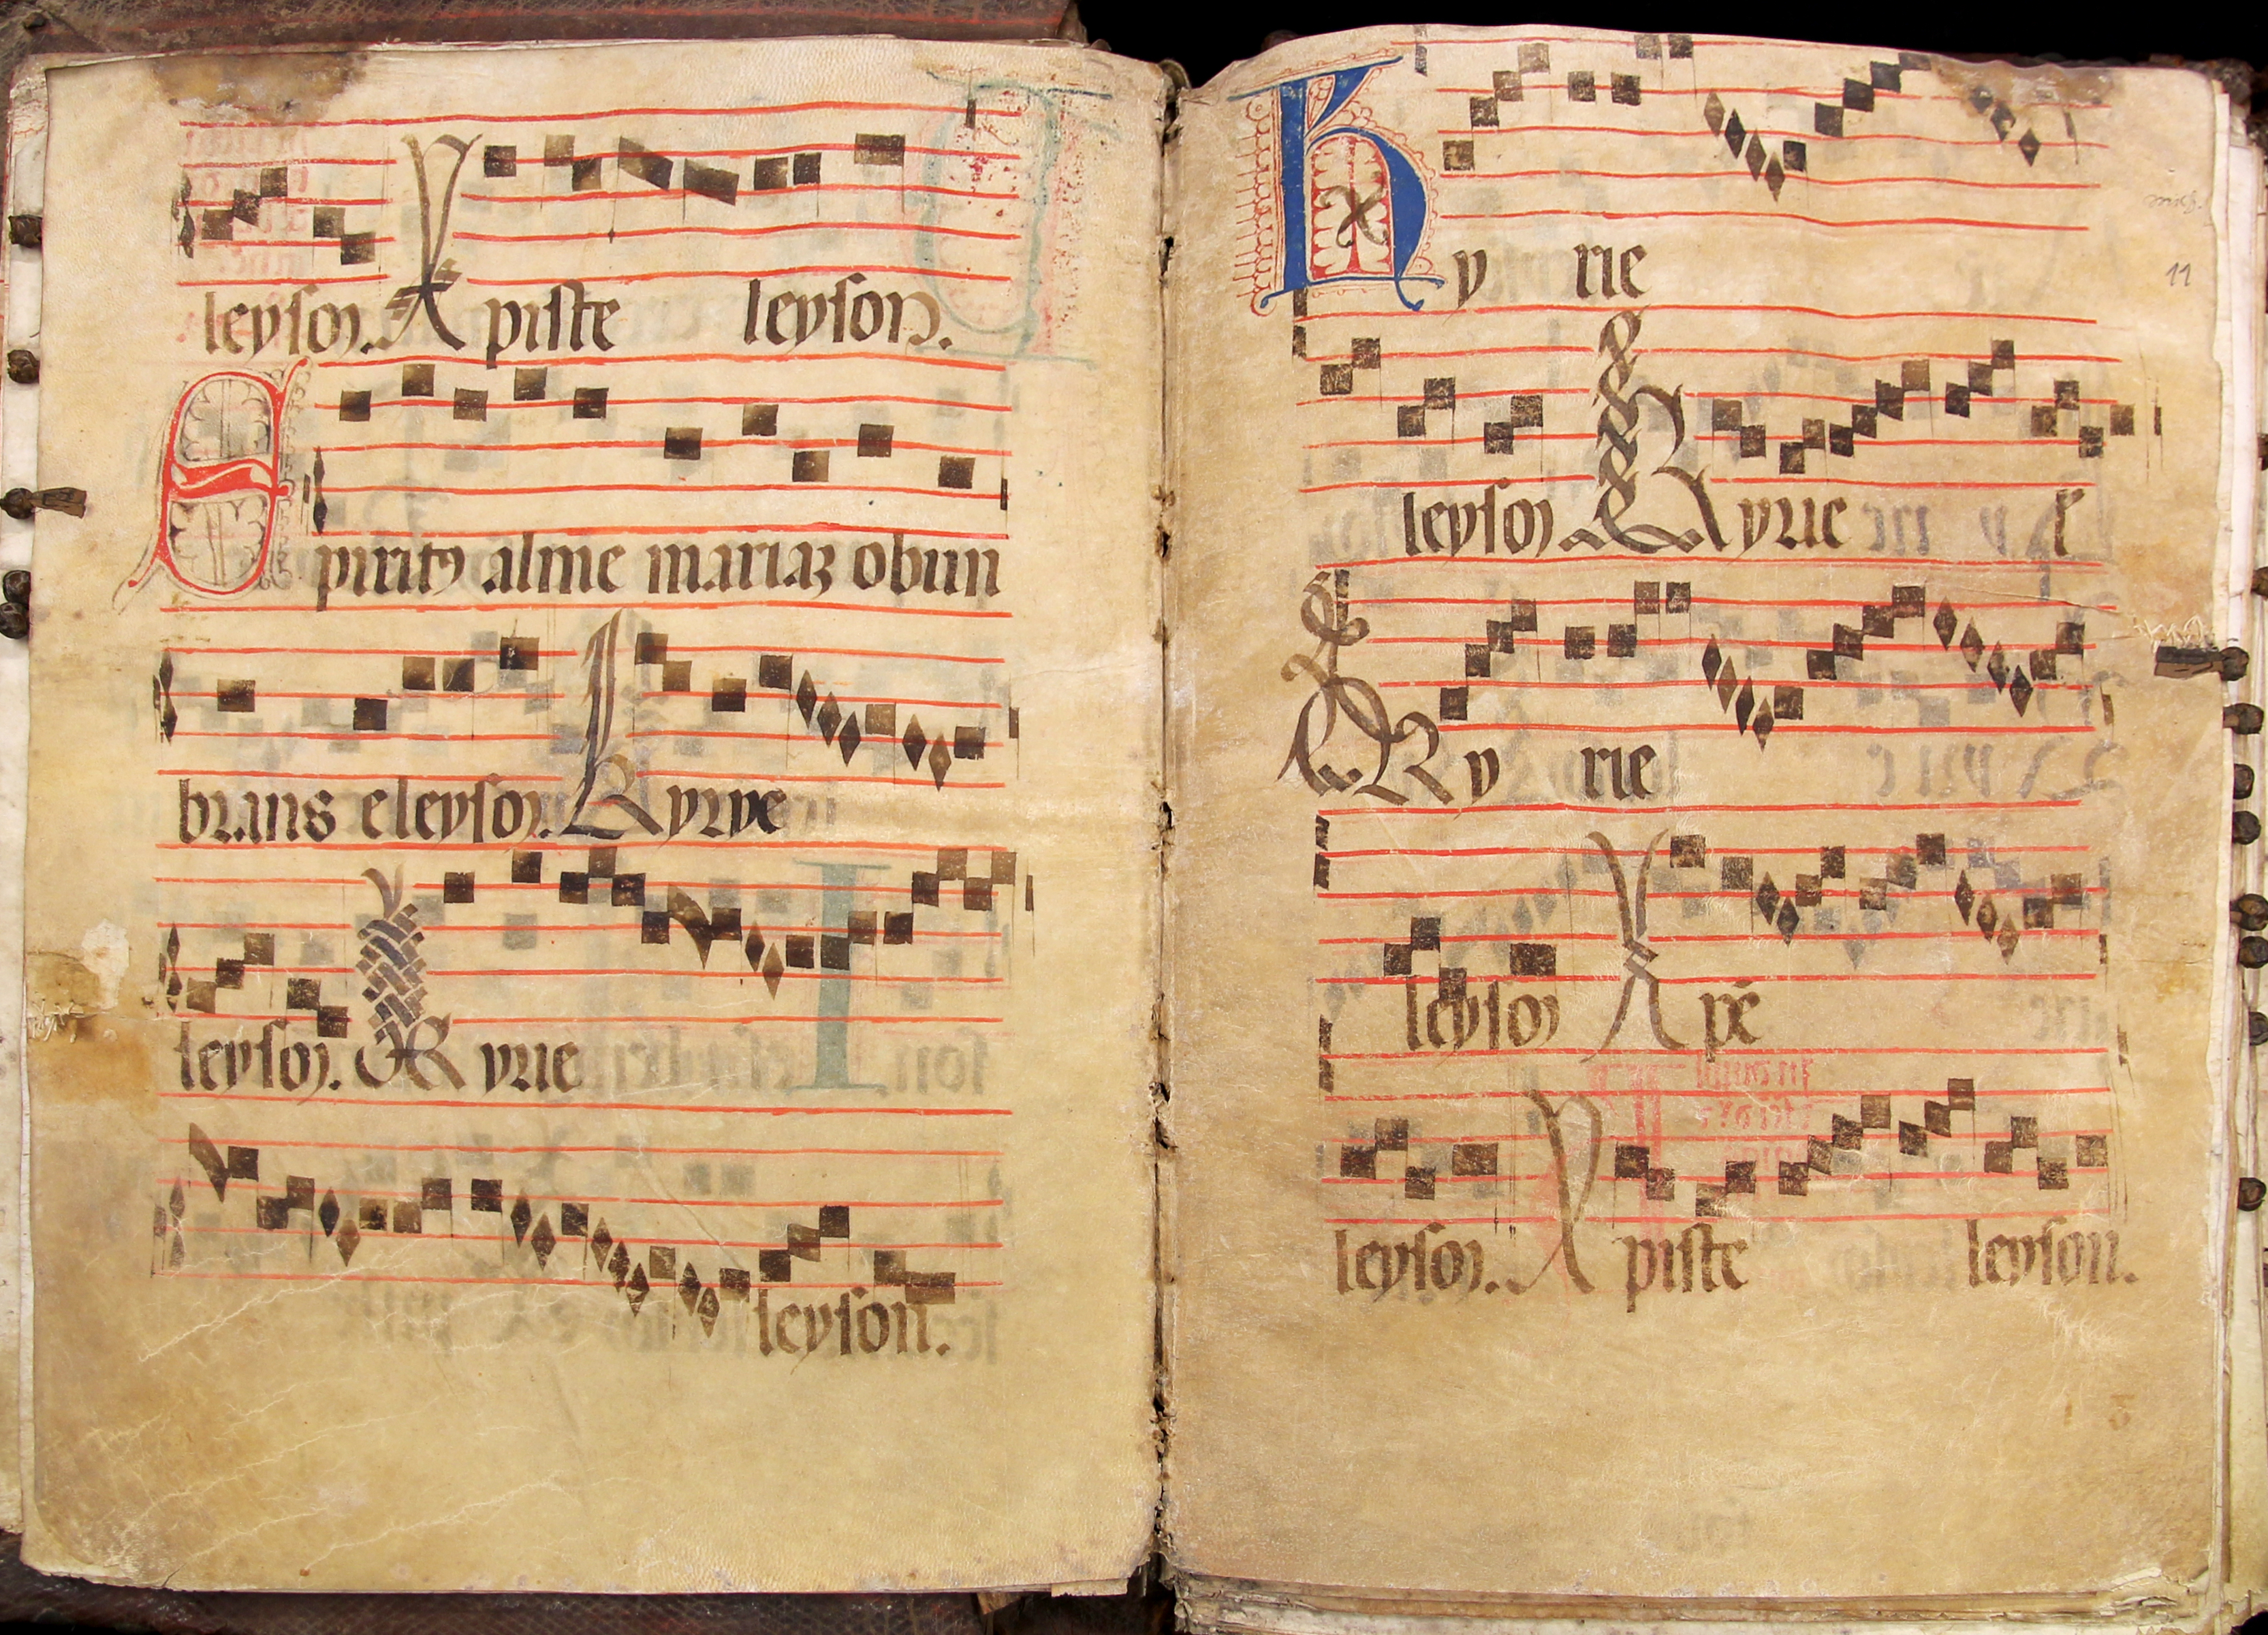 leyson. Xpiste leyson.
Spiritꝯ alme mariaꝫ obun
brans eleyson. Kyrye
leyson. Kyrie
leyson.
Kyrie
11
leyson Kyrie e
Kyrie
leyson Xpē
leyson. Xpiste leyson.